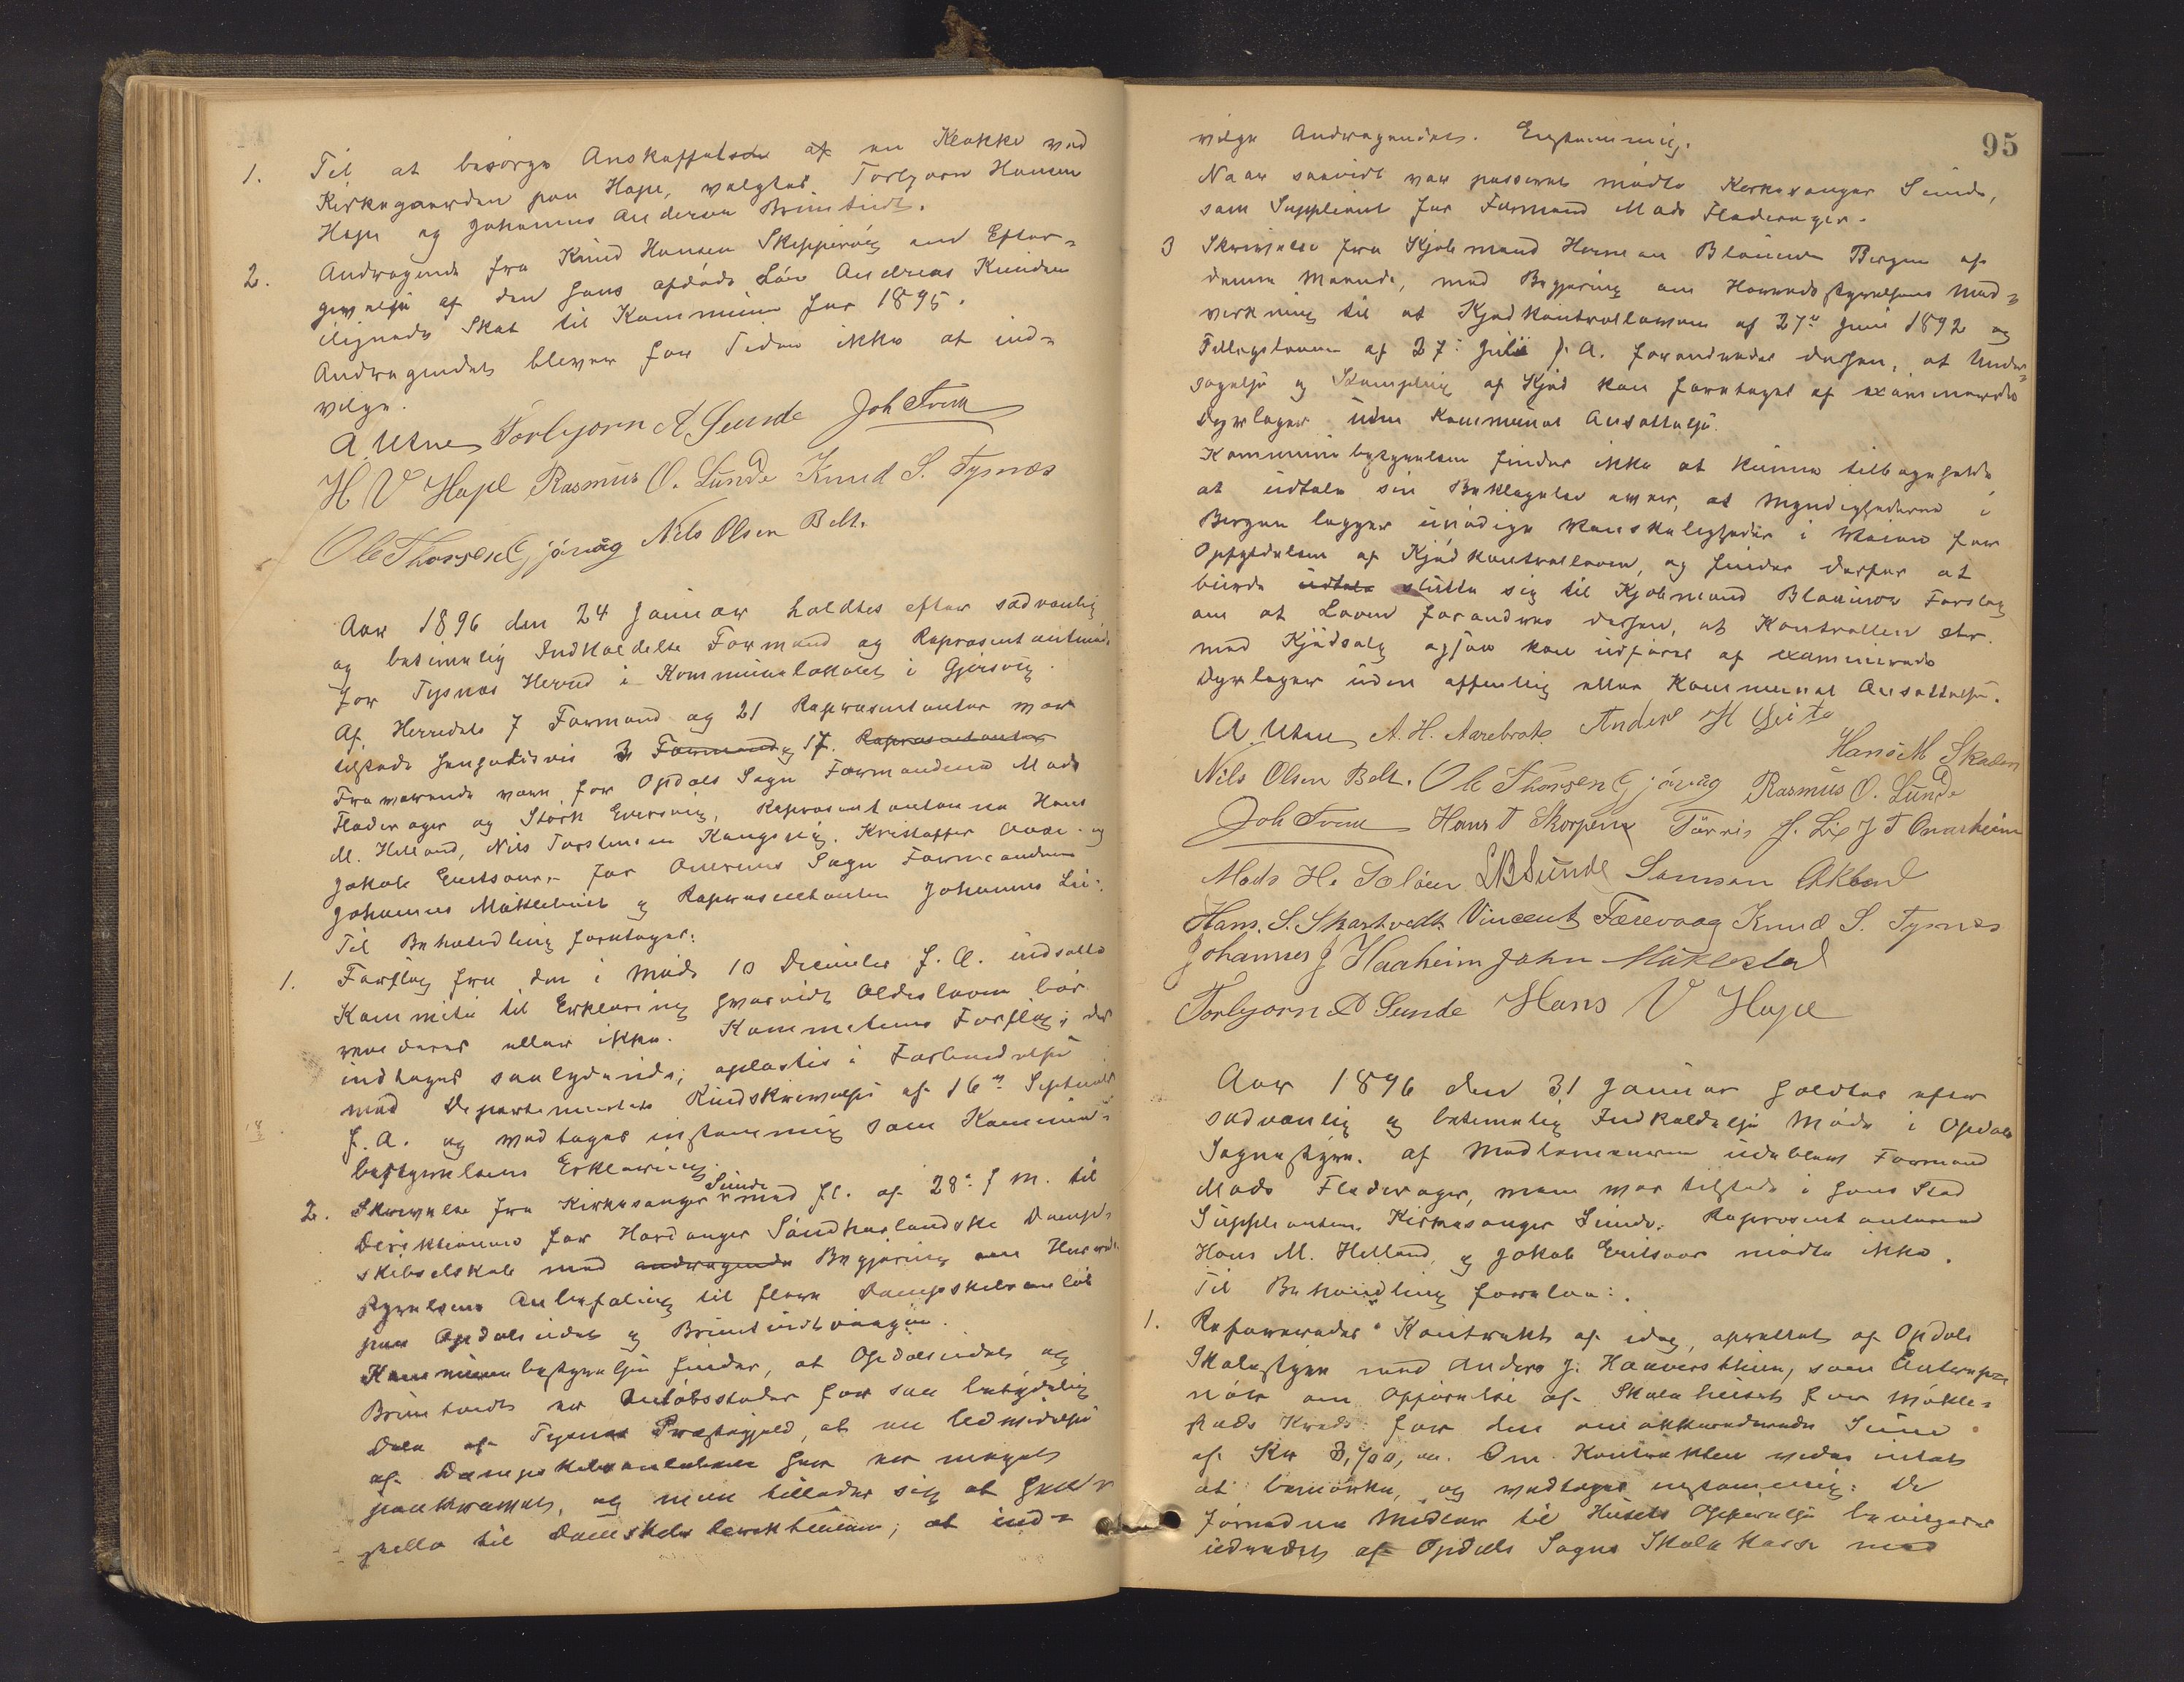 1. Til at besørge Anskaffelsen af en Klokke ved
Kirkegaarden paa Hope, valgtes Torbjørn Hansen
Hope og Johannes Andersen Brimtvedt.
2. Andragende fra Knud Hansen Skippervig om Efter-
givelse af den hans afdøde Søn Andreas Knudsen
ilignede Skat til Kommunen for 1895.
Andragendet bliver for Tiden ikke at ind-
vilge.
A. Utne Torbjørn A Sunde Joh Tveit
H V Hope Rasmus O. Lunde Knud S. Tysnes
Ole Thorsen Gjøvåg Nils Olsen Belt.
Aar 1896 den 24 Januar holdtes efter sædvanlig
og betimelig Indkaldelse Formand og Repræsentantmøde
for Tysnes Herred i Kommunelokalet i Gjersvig.
Af Herredets 7 Formænd og 21 Repræsentanter var
tilstede henholdsvis 3 Formænd og 17 Repræsentanter
Fraværende vare for Opdals Sogn Formændene Mads
Fladerager og Stork Eversvig, Repræsentanterne Hans
M. Helland, Nils Torstensen Kongsvig, Kristoffer Aase og
Jakob Eritsvær, for Onerems Sogn Formanden
Johannes Møklebust og Repræsentanten Johannes Lie.
Til Behandling foretages:
1. Forslag fra den i Møde 10 December f. A. indsatte
Kommite til Erklæring hvorvidt Odelsloven bør
revideres eller ikke. Kommiteens Forslag, der
indtages saalydende, oplæstes i Forbindelse
med Departementets Rundskrivelse af 16de September
f. A. og vedtoges enstemmig som Kommune-
bestyrelsens Erklæring.
2. Skrivelse fra Kirkesanger Sunde med fl. af 28. f M. til
Direktionen for Hardanger Søndhorlandske Damp-
skibselskab med andragende Begjæring om Herreds-
styrelsens Anbefaling til flere Dampskibsanløb
paa Opdalseidet og Brimtvedtvaagen.
Kommunebestyrelsen finder, at Opdalseidet og
Brimtvedt er Anløbssteder for saa betydelig
Dele af Tysnes Præstegjeld, at en Udvidelse
af Dampskibsanløbene her er meget
paakrævet, og man tillader sig at hen-
stille til Dampskibsdirektionen, at ind-
95
vilge Andragendet. Enstemmig.
Naar saavidt var passeret mødte Kirkesanger Sunde,
som Suppleant for Formand Mads Fladerager.
3 Skrivelse fra Kjøbmand Herman Blauuw Bergen af
denne Maaned, med Begjæring om Herredsstyrelsens Med-
virkning til at Kjødkontrolloven af 27de Juni 1892 og
Tillægsloven af 27. Juli f. A. forandredes derhen, at Under-
søgelse og Stempling af Kjød kan foretages af examinerede
Dyrlæger uden Kommunal Ansættelse.
Kommunebestyrelsen finder ikke at kunne tilbageholde
at udtale sin Beklagelse over, at Myndighederne i
Bergen lægger unødige Vanskeligheder i Veien for
Opfyldelsen af Kjødkontrolloven, og finder derfor at
burde udtale slutte sig til Kjøbmand Blauuw Forslag
om at Loven forandres derhen, at Kontrollen etc.
med Kjødsalg ogsaa kan udføres af examinerede
Dyrlæger uden offentlig eller Kommunal Ansættelse.
A. Utne A. H. Aarebrot Anders H Gjeito
Hans M Skaden
Nils Olsen Belt. Ole Thorsen Gjøvåg Rasmus O. Lunde
Joh Tveit Hans T Skorpen Tørris J. Lie J T Onarheim
Mads H. Døløen LB Sunde Samson Økland
Hans. S. Skartvedt. Vincent Færevaag Knud S. Tysnes
Johannes J Haaheim John Møklestad
Torbjørn A Sunde Hans V Hope
Aar 1896 den 31 Januar holdtes efter
sædvanlig og betimelig Indkaldelse Møde i Opdals
Sognestyre. Af Medlemmerne udeblev Formand
Mads Fladerager, men var tilstede i hans Sted
Suppleanten Kirkesanger Sunde. Repræsentanterne
Hans M. Helland, og Jakob Eritsvær mødte ikke.
Til Behandling forelaa:
1. Refereredes Kontrakt af idag, oprettet af Opdals
Skolestyre med Anders J. Haavershein, som Entrepre-
nør om Opførelse af Skolehuset for Møkle-
stads Kreds for den omakkorderede Sum
af Kr 3,700,00. Om Kontrakten vedes intet
at bemærke, og vedtages enstemmig: De
fornødne Midler til Husets Opførelse bevilgedes
udredet af Opdals Sogns Skolekasse med